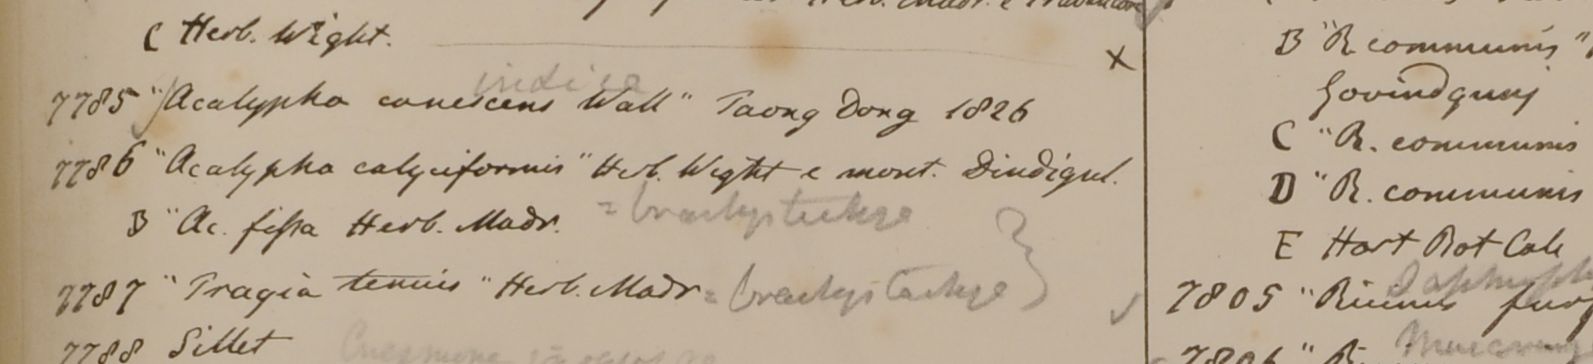 Herb. Madr. e Travancore
C Herb. Wight. x
indica
7785 "Acalypha canescens Wall" Taong Dong 1826
7786 "Acalypha calyciformis" Herb. Wight e mont. Dindigul.
B "Ac. fissa Herb. Madr. = brachystachya
7787 "Tragia tenuis" Herb. Madr = brachystachya }
7788 Sillet
B "R. communis"
Govindgunj
C "R. communis
D "R. communis
E Hort Bot Calc
7805 "Ricinus
7806 "